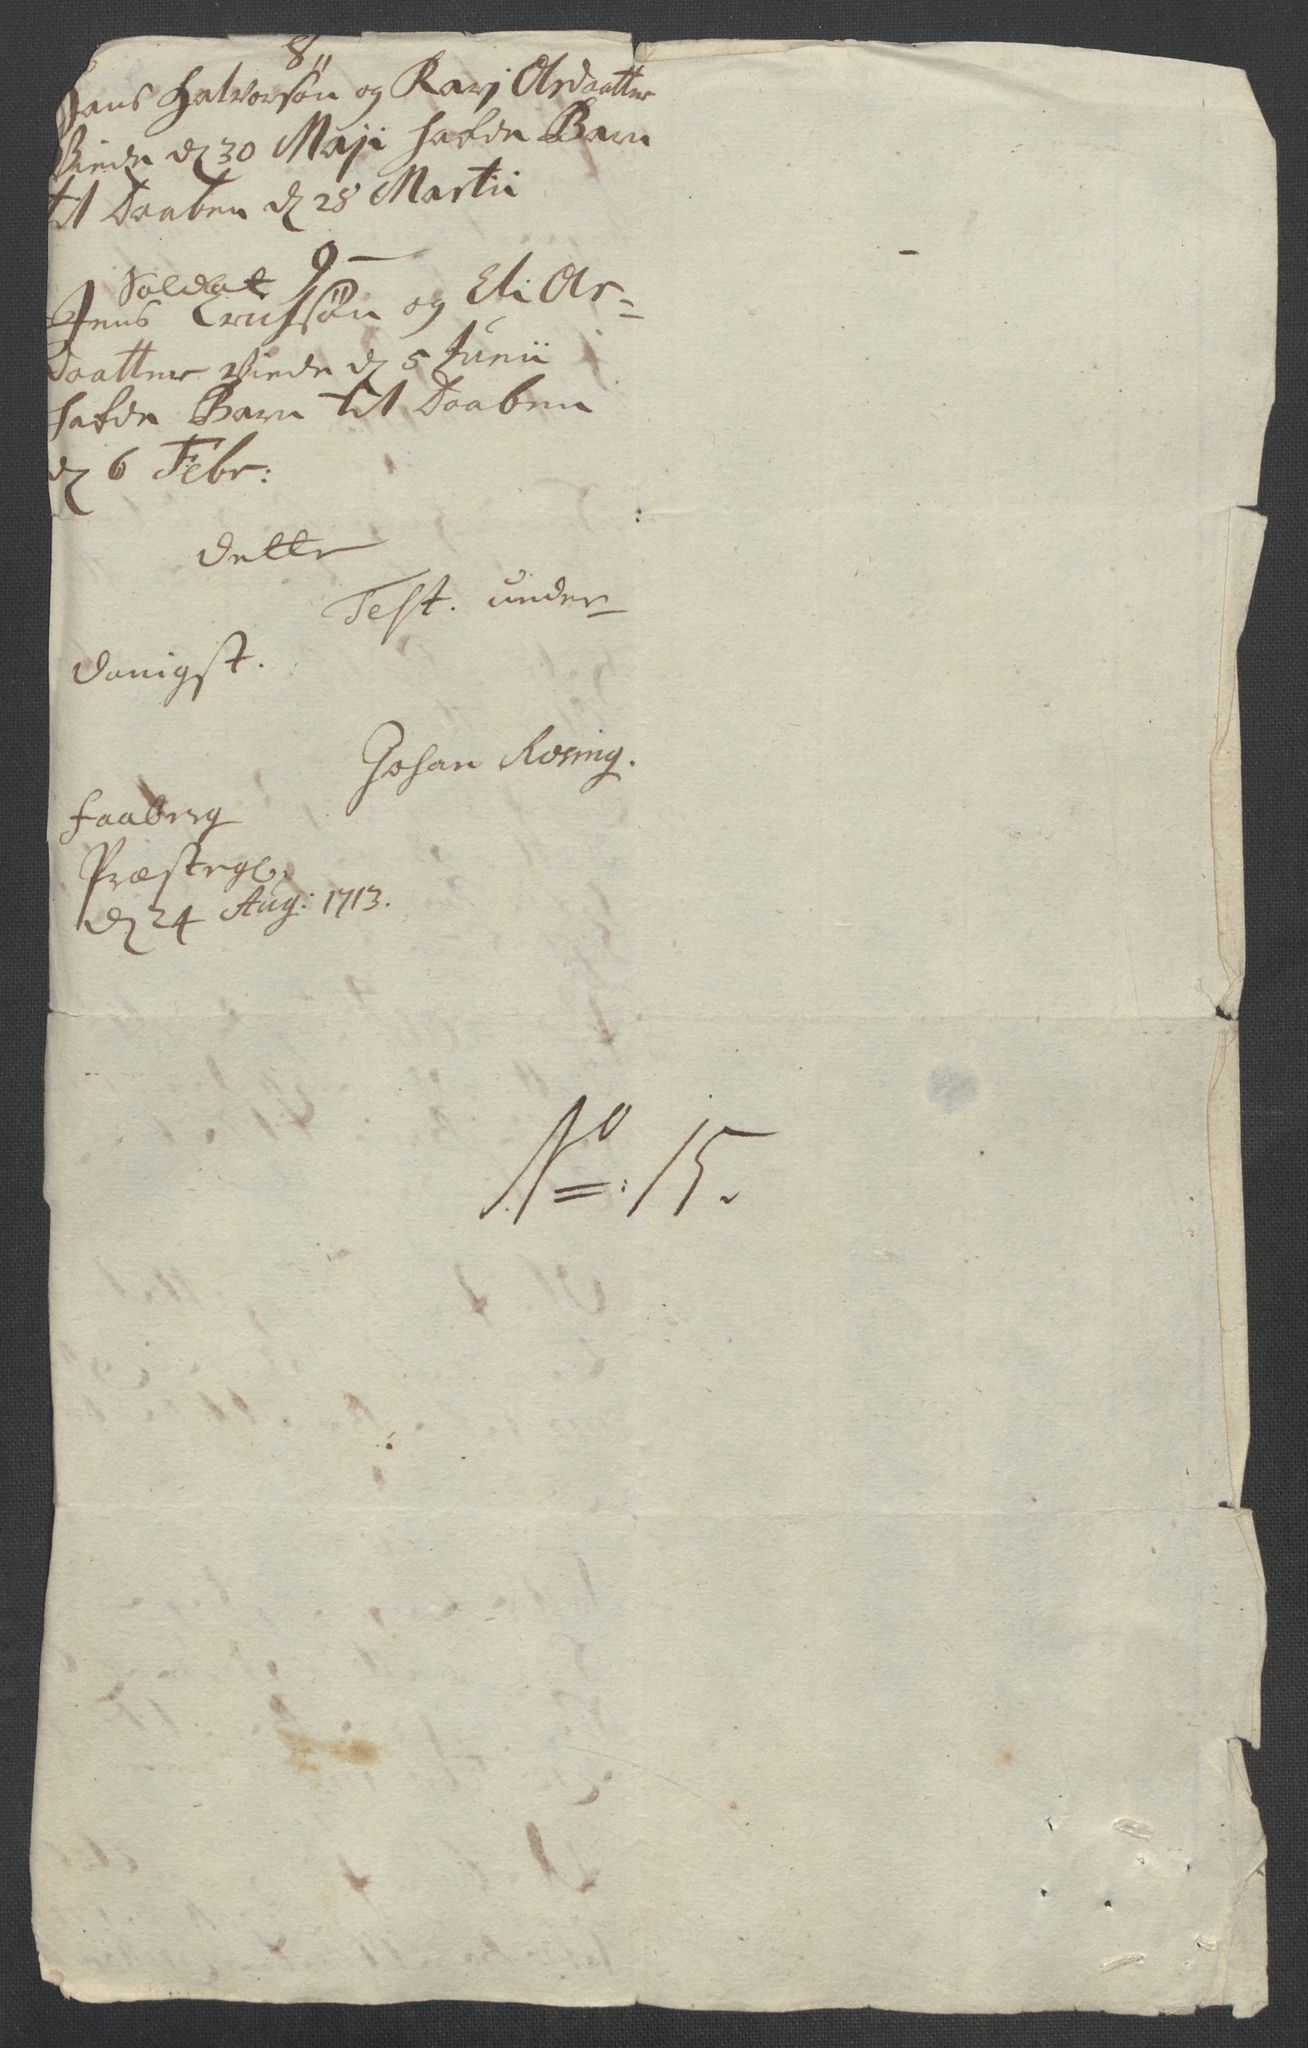 8,,
Hans Halvorsøn og Karj Olsdaatter
Viede d 30 Maji hafde Barn
til Daaben d 28 Martii
9 –
Soldat
Jens Erichsøn og Eli Ols=
daatter Viede d 5 Junii
hafde Barn til Daaben
d 6 Febr:
Dette
Test. under=
danigst.
Johan Rosing.
Faaberg
Præstegl.
d 24 Aug: 1713.
No: 15.